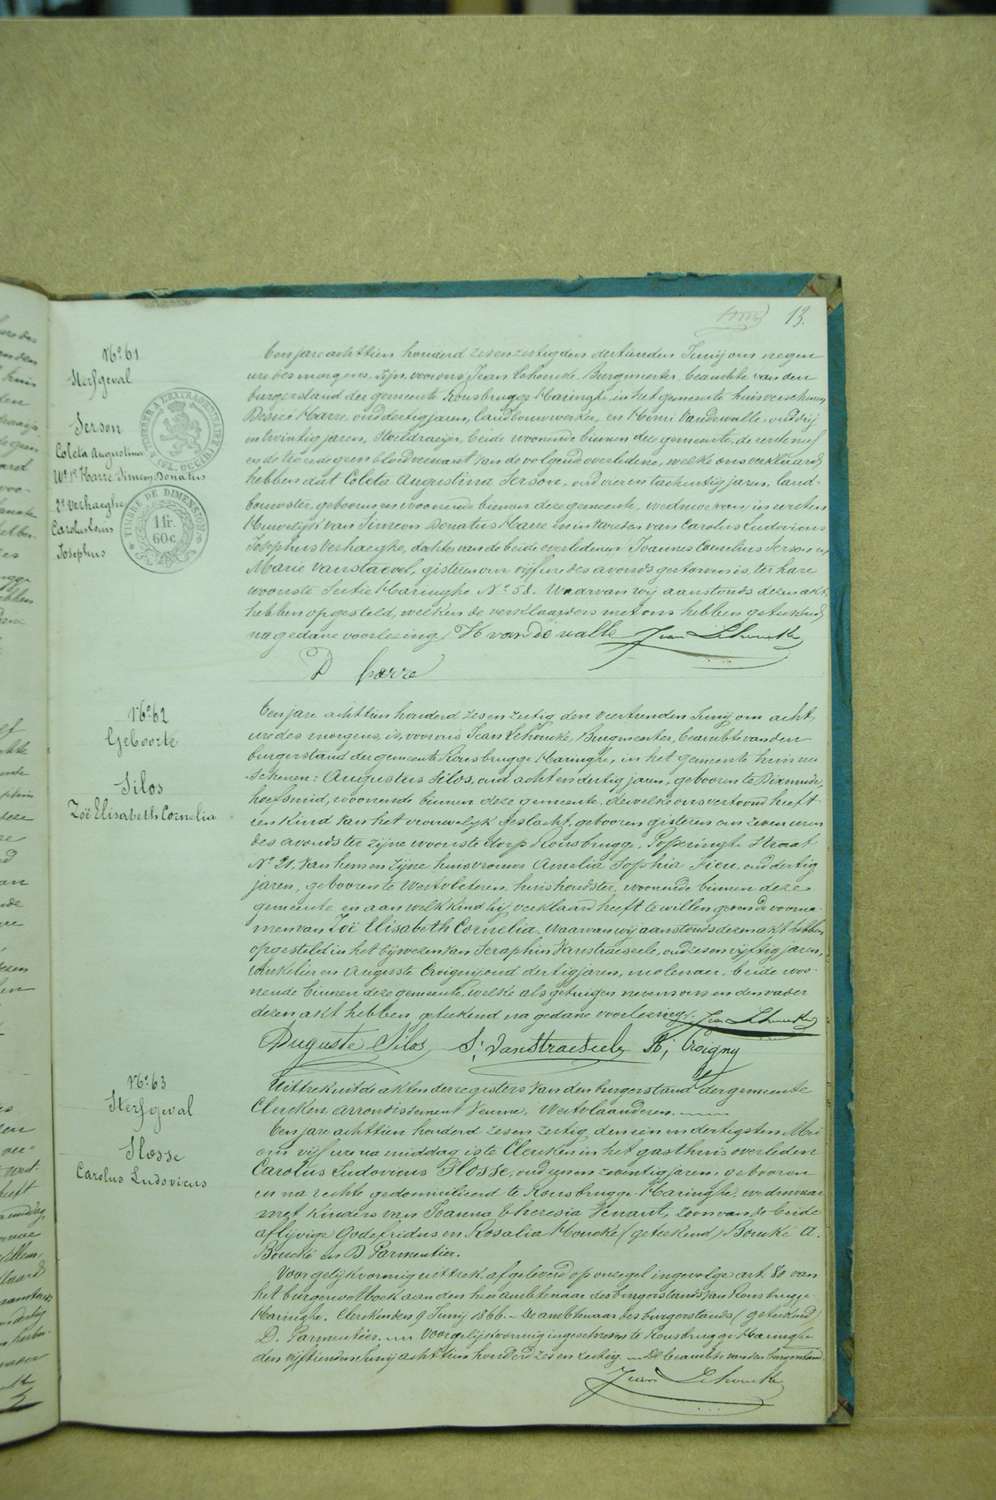 13.
N° 61
Sterfgeval
Serson
Coleta Augustina
We 1° Harre Simeon Donatus
2° Verhaeghe
Carolus Louis
Josephus
TIMBRE DE DIMENSION
1 fr.
60 c
Een jare achttien honderd zes en zestig den dertienden Junij om negen
ure des morgens, zijn voor ons Jean Schoucke, Burgmeester, beambte van den
burgerstand der gemeente Rousbrugge Haringhe, in het gemeente huis verschenen
Désiré Harre, oud dertig jaren, landbouwwerker, en Henri Vandewalle, oud drij
en twintig jaren, stoeldraeijer, beide woonende binnen deze gemeente, de eerste neef
en de tweede geen bloedverwant van de volgende overledene, welke ons verklaard
hebben dat Coleta Augustina Serson, oud vier en tachentig jaren, land-
bouwster, geboren en woonende binnen deze gemeente, weduwe van in eersten
Huwelijk van Simeon Donatus Harre en in tweeden van Carolus Ludovicus
Josephus Verhaeghe, dochter van de beide overledenen Joannes Cornelius Serson en
Marie Vanstaevel, gisteren om vijf ure des avonds gestorven is, ter hare
woonste Sectie Haringhe N° 58. Waarvan wij aanstonds dezen akt
hebben opgesteld, welken de verklaarders met ons hebben geteekend
na gedane voorlezing. H vande walle Jean Schoucke
D harre
N° 62
Geboorte
Silos
Zoë Elisabeth Cornelia
Een jare achttien honderd zes en zestig den veertienden Junij om acht
ure des morgens, is voor ons Jean Schoucke, Burgmeester, beambte van den
burgerstand der gemeente Rousbrugge Haringhe, in het gemeente huis ver-
schenen: Augustus Silos, oud acht en dertig jaren, geboren te Dixmude,
hoefsmid, woonende binnen deze gemeente, dewelke ons vertoond heeft
een kind van het vrouwelijk geslacht, geboren gisteren om zeven uren
des avonds ter zijne woonste dorp Rousbrugge, Poperinghe Straat
N° 21, van hem en zijne huisvrouwe Amelia Sophia Sieu, oud dertig
jaren, geboren te Westvleteren, huishoudster, woonende binnen deze
gemeente en aan welk kind hij verklaard heeft te willen geven de voorna-
men van Zoë Elisabeth Cornelia. Waarvan wij aanstonds dezen akt hebben
opgesteld in het bijwezen van Seraphin Vanstraeseele, oud zes en vijftig jaren,
winkelier en Auguste Croigny oud dertig jaren, molenaar, beide woo-
nende binnen deze gemeente, welke als getuigen nevens ons en den vader
dezen akt hebben geteekend na gedane voorlezing. Jean Schoucke
Auguste Silos S; VanStraeseele A; Croigny
N° 63
Sterfgeval
Slosse
Carolus Ludovicus
Uittrek uit de akten der registers van den burgerstand der gemeente
Clercken arrondissement Veurne, Westvlaanderen.
Een jare achttien honderd zes en zestig, den een en dertigsten Mei
om vijf ure na middag, is te Clercken in het gasthuis overleden
Carolus Ludovicus Slosse, oud zes en zeventig jaren, geboren
en na rechte gedomicilieerd te Rousbrugge-Haringhe, weduwnaar
met kinders van Joanna Theresia Venant, zoon van de beide
aflijvige Godefridus en Rosalia Houcke (geteekend) Boucké A.
Boucké en D Parmentier.
Voor gelijkvormig uittrek afgeleverd op onzegel ingevolge art. 80 van
het burger wetboek aan den heer ambtenaar des burgerstands van Rousbrugge-
Haringhe. Clercken den 9 Junij 1866. De ambtenaar des burgerstands (geteekend)
D. Parmentier. Voor gelijkvormig ingeschreven te Rousbrugge Haringhe
den vijftienden Junij achttien honderd zes en zestig. De beambte van den burgerstand
Jean Schoucke